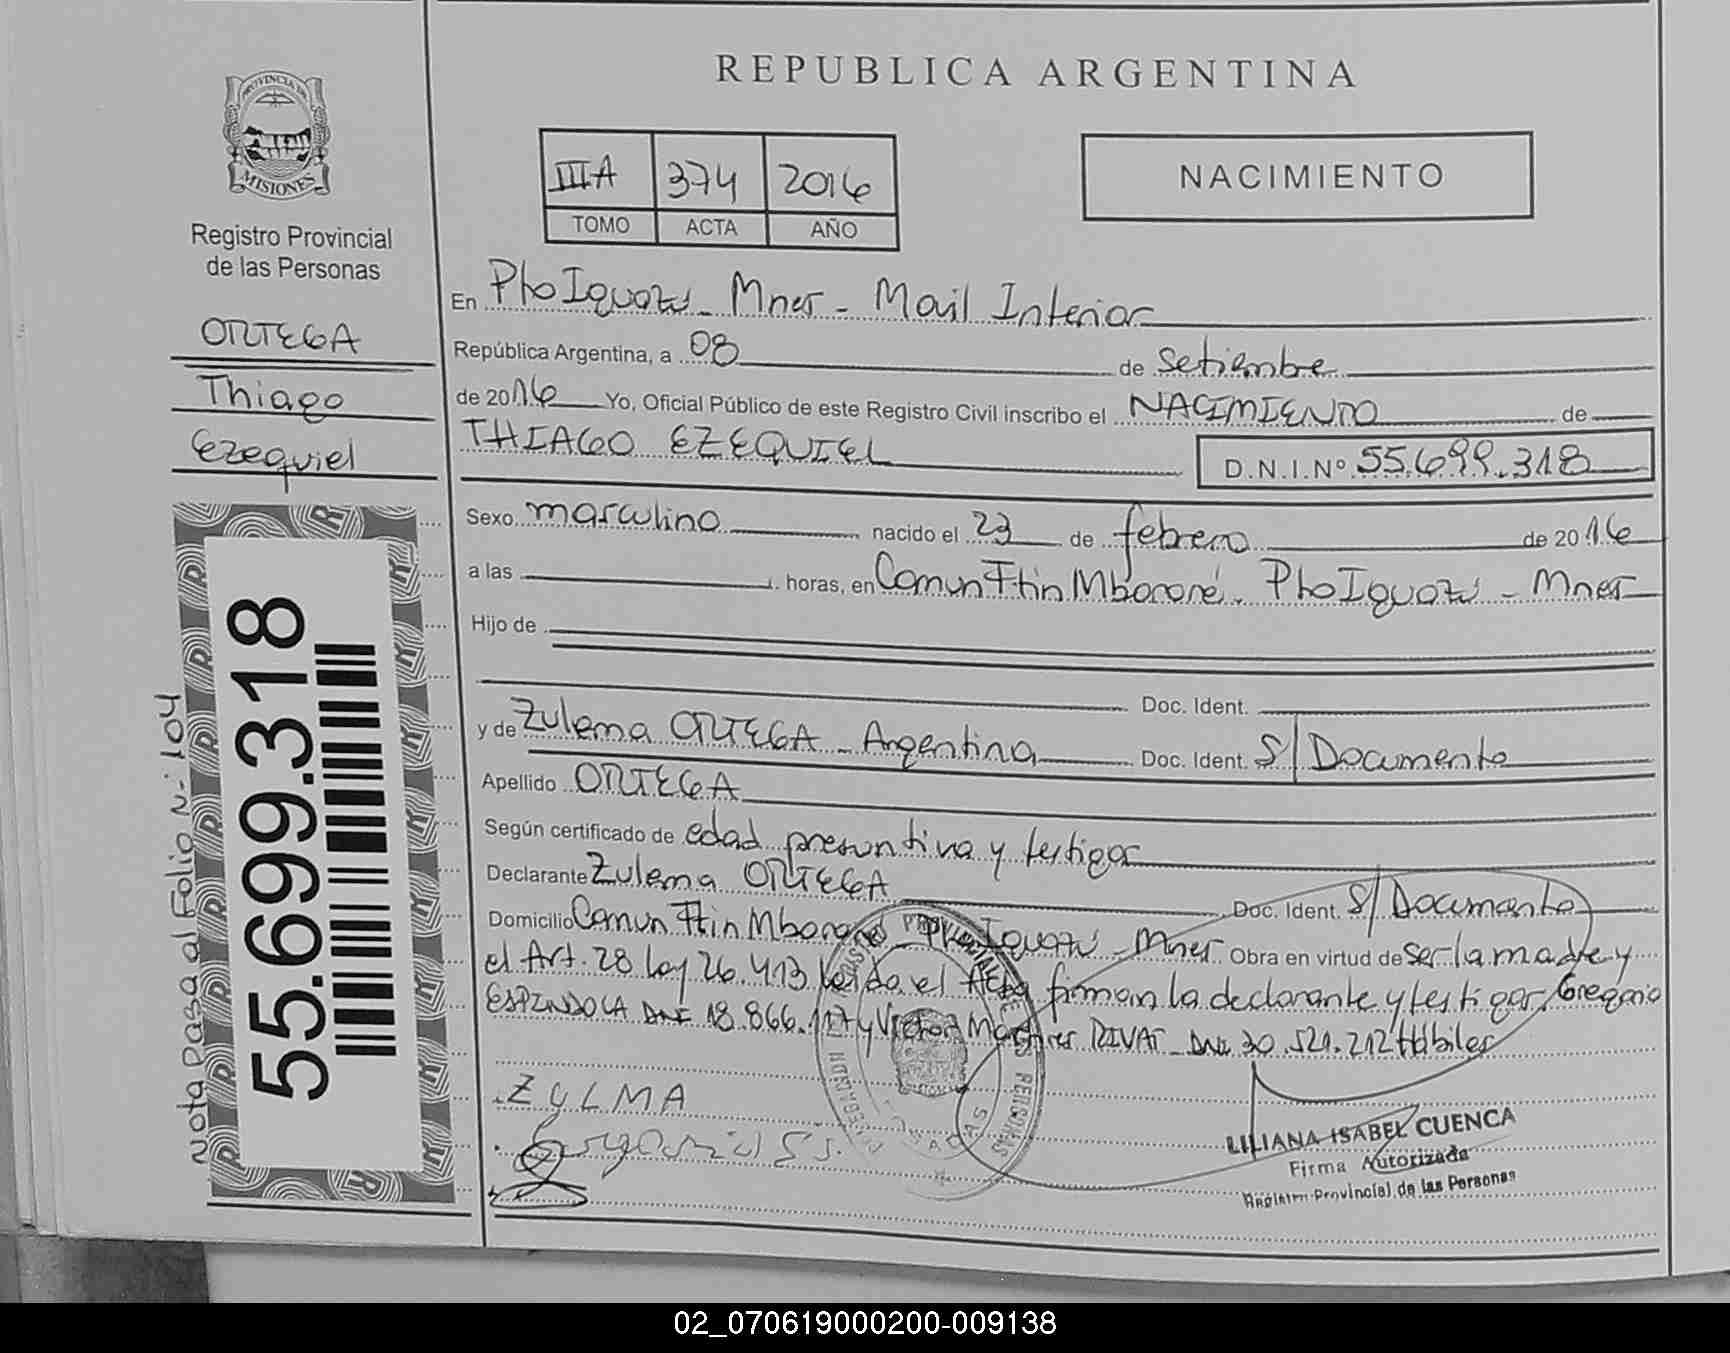 REPUBLICA ARGENTINA
PROVINCIA DE
MISIONES
Registro Provincial
de las Personas
ORTEGA
Thiago
Ezequiel
55.699.318
Nota pasa al Folio N: 104
IIIA 374 2016
TOMO ACTA AÑO
NACIMIENTO
En Pto Iguazú - Mnes - Mail Interior
República Argentina, a 08 de Setiembre
de 2016 Yo, Oficial Público de este Registro Civil inscribo el NACIMIENTO de
THIAGO EZEQUIEL D.N.I.Nº 55.699.318
Sexo masculino nacido el 23 de febrero de 2016
a las horas, en Comun Ftin Mbororé. Pto Iguazú - Mnes
Hijo de
Doc. Ident.
y de Zulema ORTEGA - Argentina Doc. Ident. S/ Documento
Apellido ORTEGA
Según certificado de edad presuntiva y testigos
Declarante Zulema ORTEGA Doc. Ident. S/ Documento
Domicilio Comun Ftin Mbororé - Pto Iguazú - Mnes Obra en virtud de ser la madre y
el Art. 28 Ley 26.413 Leída el Acta firman la declarante y testigos Gregorio
ESPINDOLA DNI 18.866.117 y Victor Martires RIVAS - DNI 30.521.212 Hábiles
ZYLMA
LILIANA ISABEL CUENCA
Firma Autorizada
Registro Provincial de las Personas
02_070619000200-009138